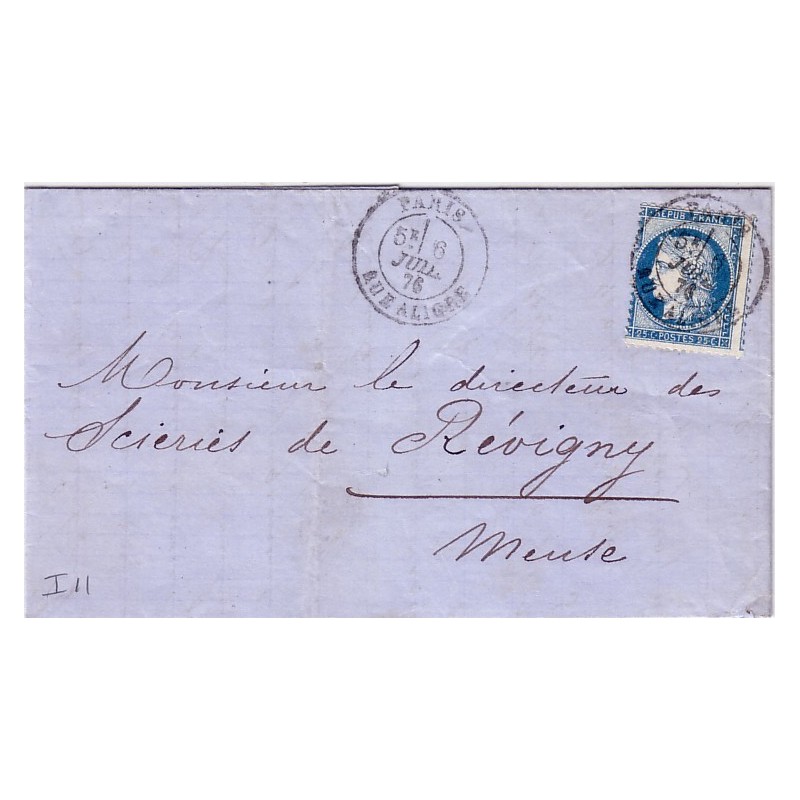 PARIS
5E 6
JUIL.
76
RUE ALIGRE
REPUB. FRANC.
25 C POSTES 25 C
Monsieur le directeur des
Scieries de Révigny
Meuse
I 11